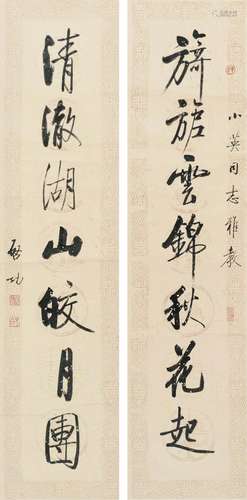 小英同志雅教
旖旎雲錦秋花起
清澈湖山皎月團
啟功